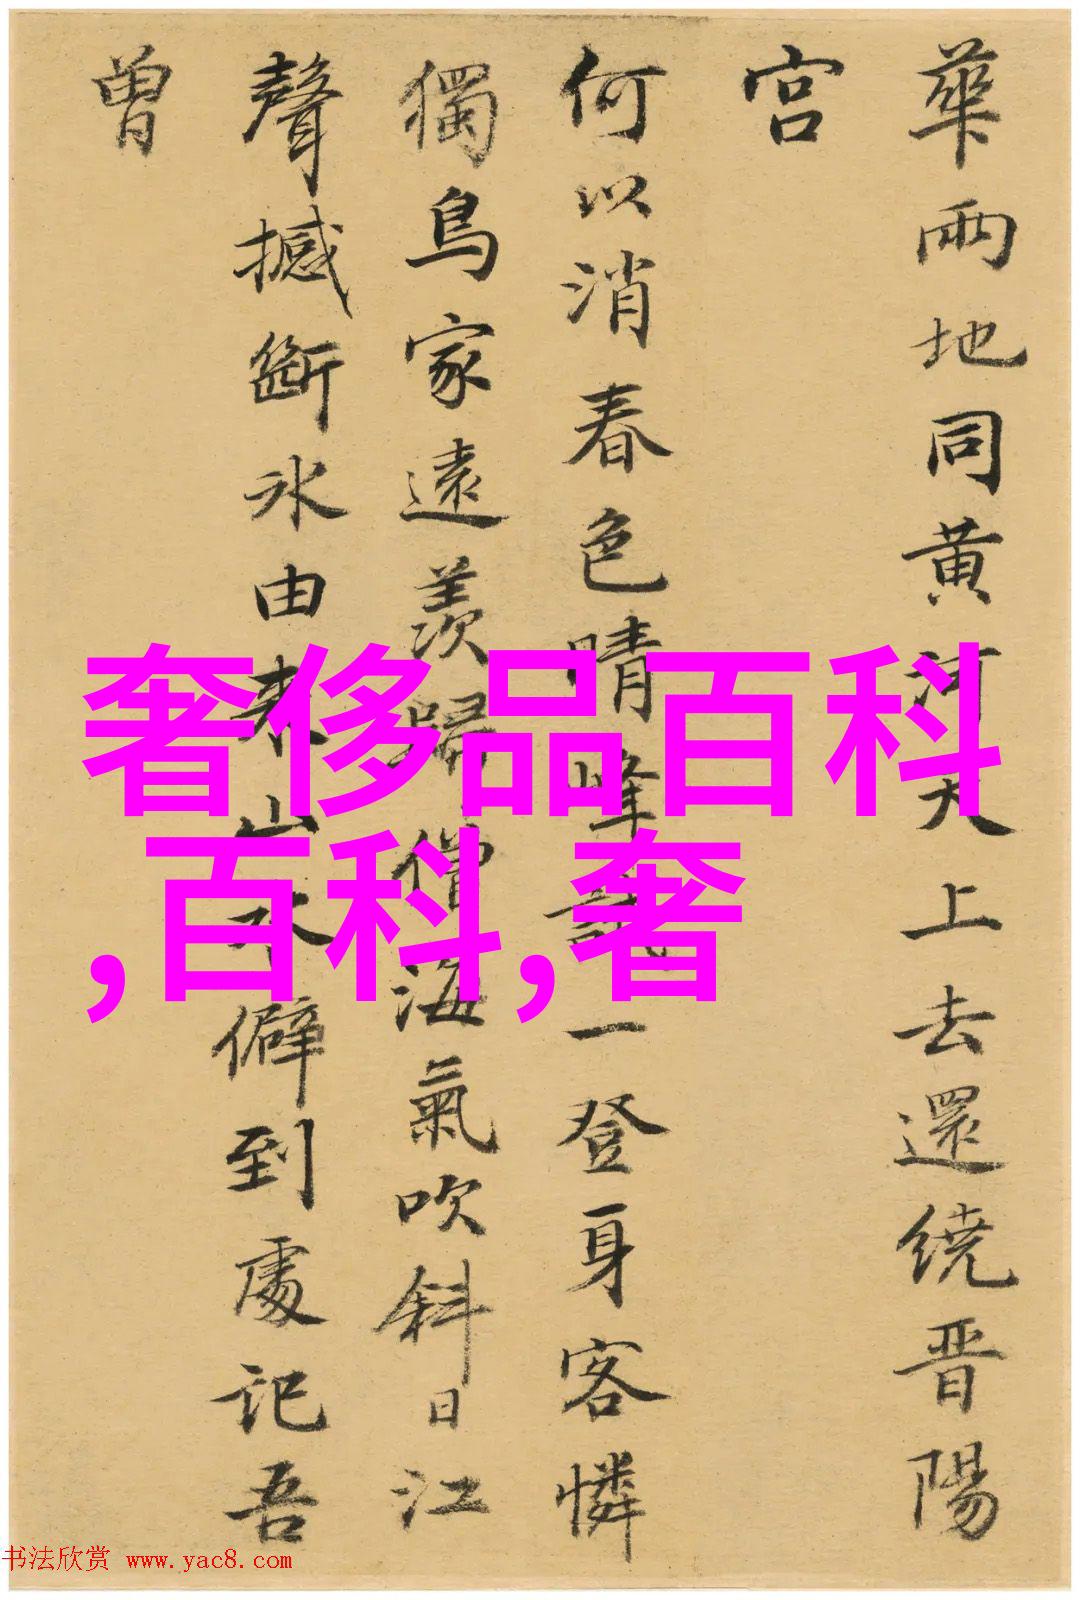 華兩地同黄河天上去還繞晋陽
宫
何以消春色晴峰試一登身客憐
獨鳥家遠羨歸僧海氣吹斜日江
聲撼斷冰由来山水僻到處記吾
曾
奢侈品百科
,百科,奢
书法欣赏 www.yac8.com